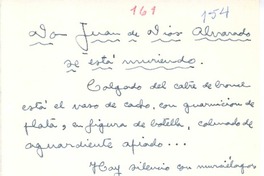 161 154
Don Juan de Dios Alvarado
se está muriendo.
Colgado del catre de bronce
está el vaso de cacho, con guarnición de
plata, en figura de botella, colmado de
aguardiente afiado...
Hay silencio con murciélagos